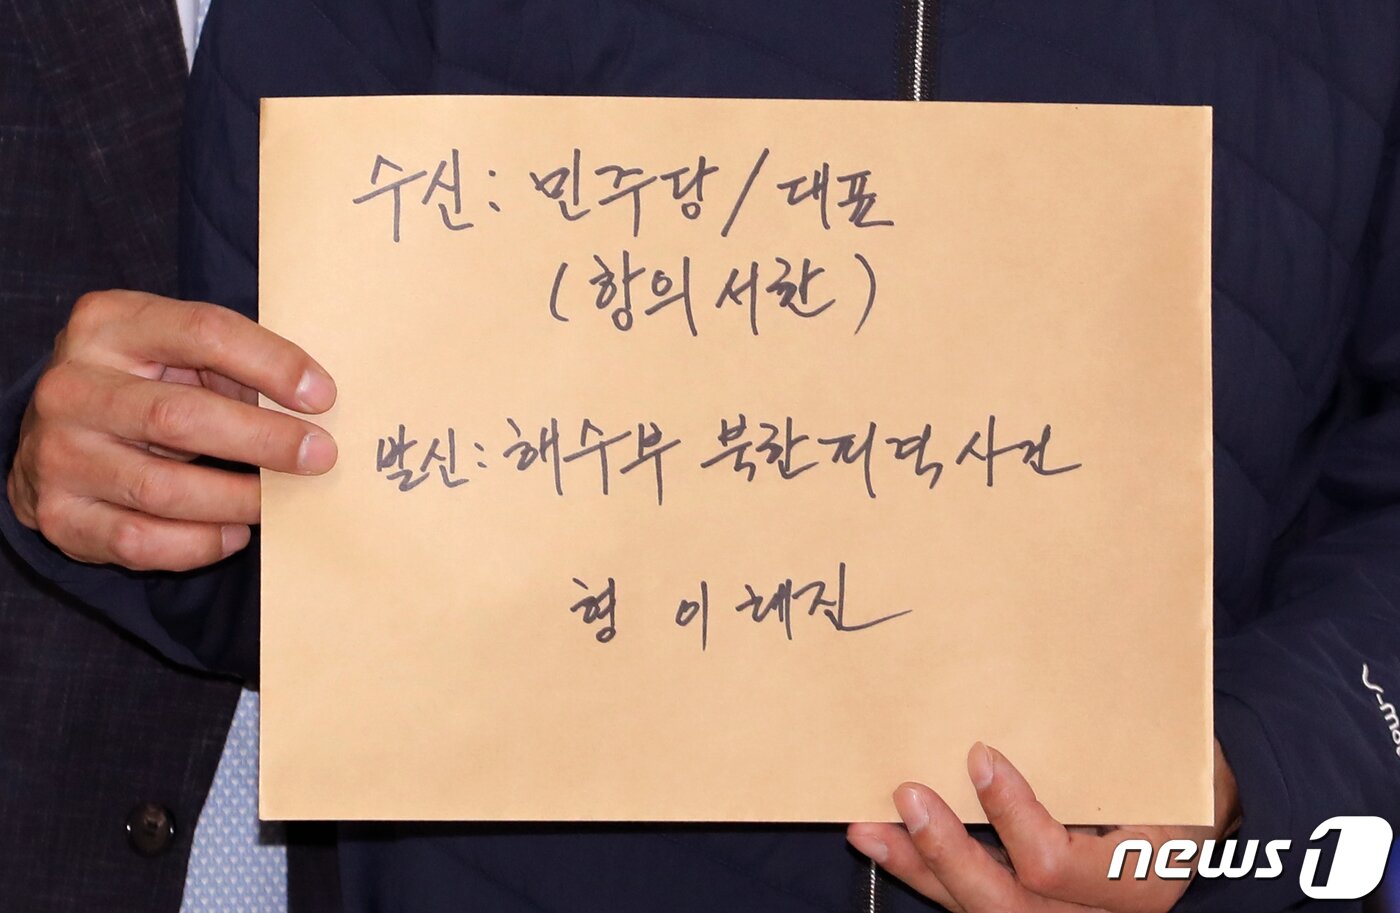 수신: 민주당/대표
(항의 서한)
발신: 해수부 북한피격사건
형 이래진
news1